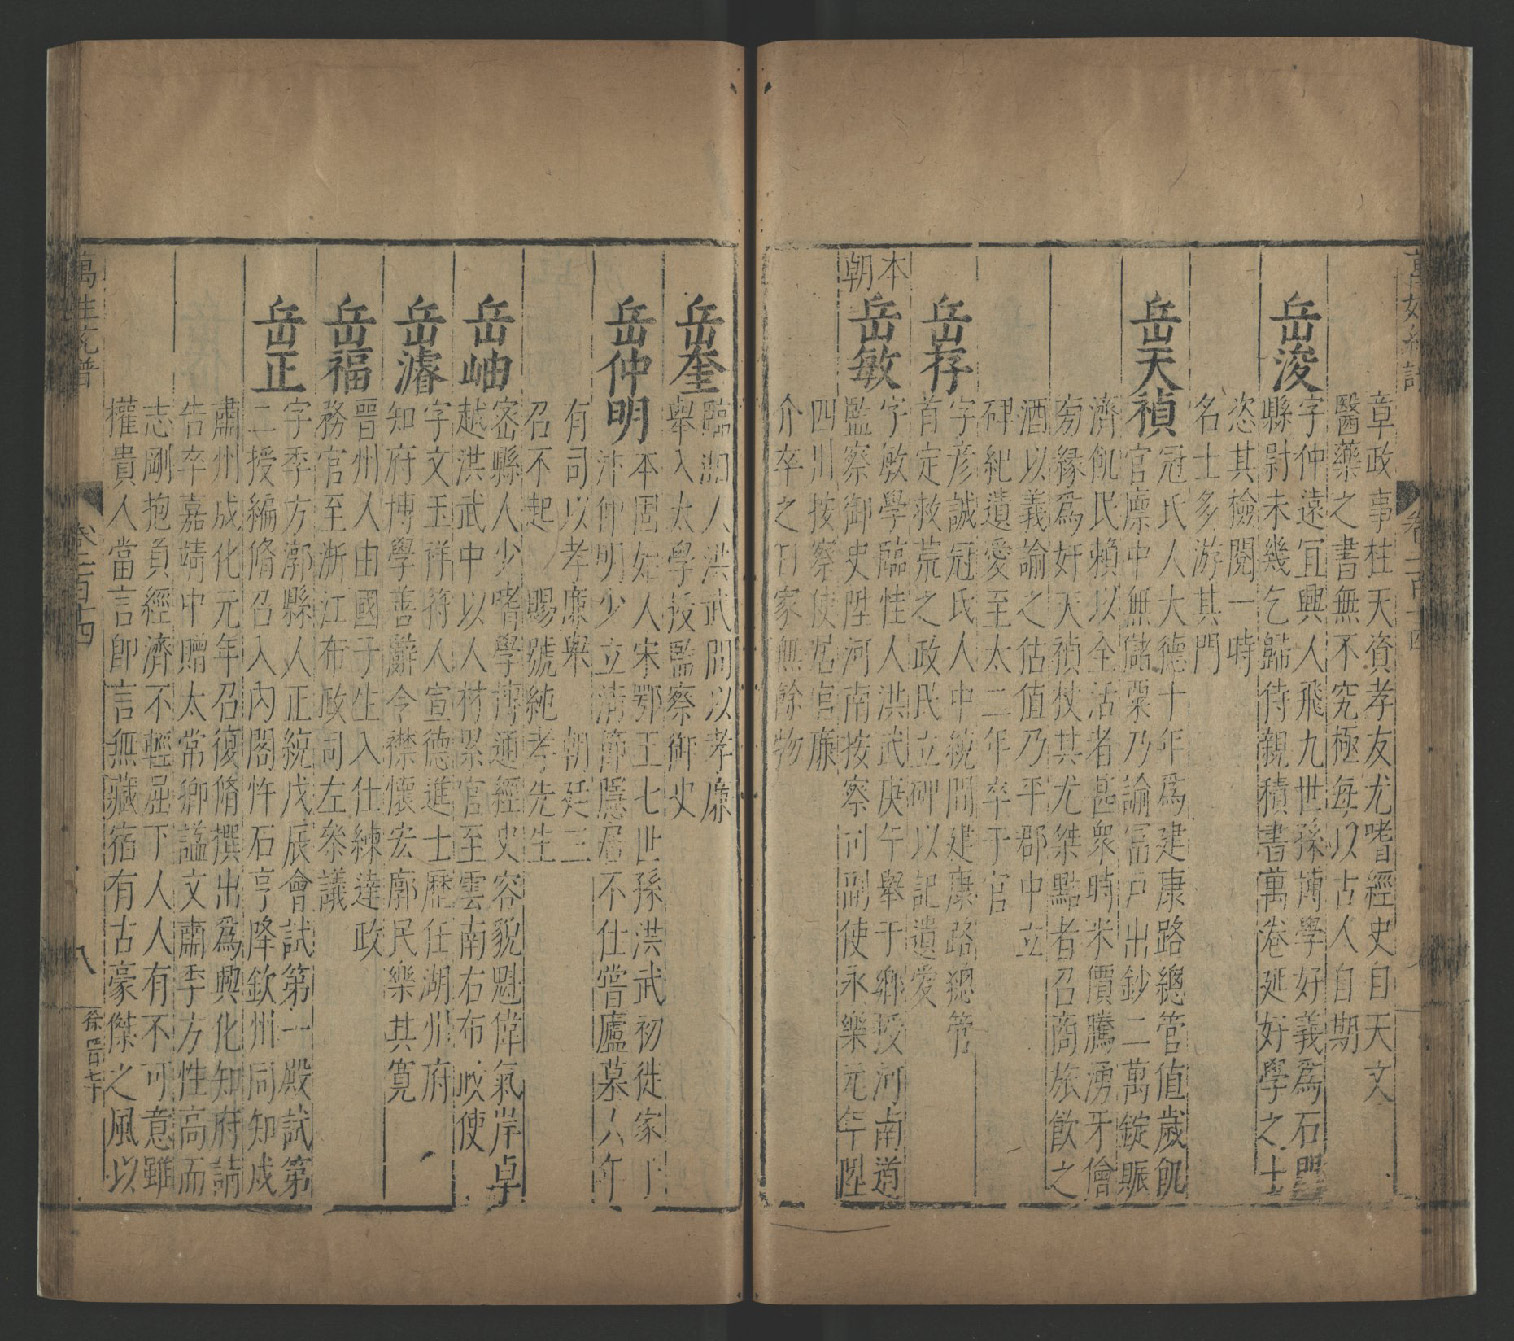 章政事柱天資孝友尤嗜經史自天文
醫藥之書無不究極每以古人自期
岳浚 字仲遠宜興人飛九世孫博學好義爲石門
縣尉未幾乞歸待親積書萬卷延好學之士
恣其檢閱一時
名士多游其門
岳天禎 冠氏人大德十年爲建康路總管值歲飢
官廪中無儲粟乃諭富戶出鈔二萬錠賑
濟飢民賴以全活者甚衆時米價騰湧牙儈
夤緣爲奸天禎杖其尤桀黠者召商旅飲之
酒以義諭之估值乃平郡中立
碑紀遺愛至太二年卒于官
岳存 字彦誠冠氏人中統間建康路總管
首定救荒之政民立碑以記遺愛
本朝
岳敏 字敏學臨淮人洪武庚午舉于鄉授河南道
監察御史陞河南按察司副使永樂元年陞
四川按察使居官廉
介卒之日家無餘物
岳奎 臨淄人洪武間以孝廉
舉入太學授監察御史
岳仲明 本固始人宋鄂王七世孫洪武初徙家
沖仲明少立清節隱居不仕嘗廬墓八年
有司以孝廉舉 朝廷三
召不起 賜號純孝先生
岳岫 密縣人少嗜學博通經史容貌魁偉氣岸卓
越洪武中以人材累官至雲南右布政使
岳濬 字文玉祥符人宣德進士歷任湖州府
知府博學善辭令襟懷宏廓民樂其寬
岳福 晉州人由國子生入仕練達政
務官至浙江布政司左叅議
岳正 字季方漷縣人正統戊辰會試第一殿試第
二授編脩召入內閣忤石亨降欽州同知戍
肅州成化元年召復脩撰出爲興化知府請
告卒嘉靖中贈太常卿謚文肅季方性高而
志剛抱負經濟不輕屈下人人有不可意雖
權貴人當言即言無藏宿有古豪傑之風以
萬姓統譜 卷一百十四 八